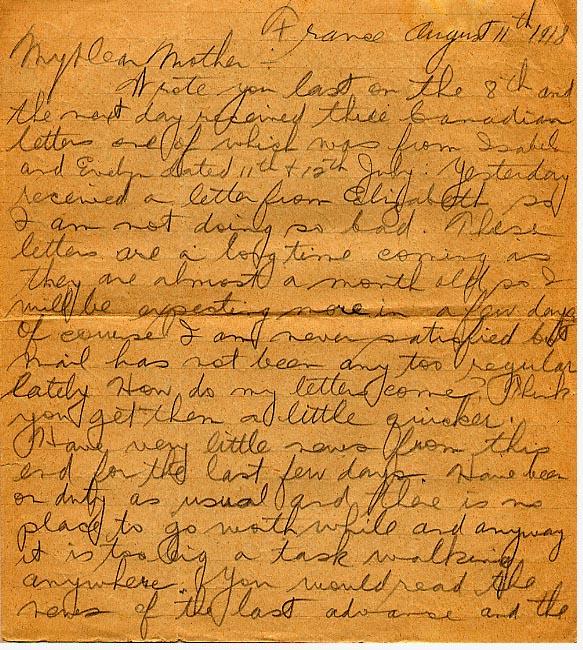 France August 11th 1918
My Dear Mother:
Wrote you last on the 8th and
the next day received three Canadian
letters one of which was from Isabel
and Evelyn dated 11th + 12th July. Yesterday
received a letter from Elizabeth so
I am not doing so bad. These
letters are a long time coming as
they are almost a month old so I
will be expecting more in a few days
Of course I am never satisfied but
mail has not been any too regular
lately How do my letters come? Think
you get them a little quicker.
Have very little news from this
end for the last few days. Have been
on duty as usual and there is no
place to go worth while and anyway
it is too big a task walking
anywhere. You would read the
news of the last advance and the